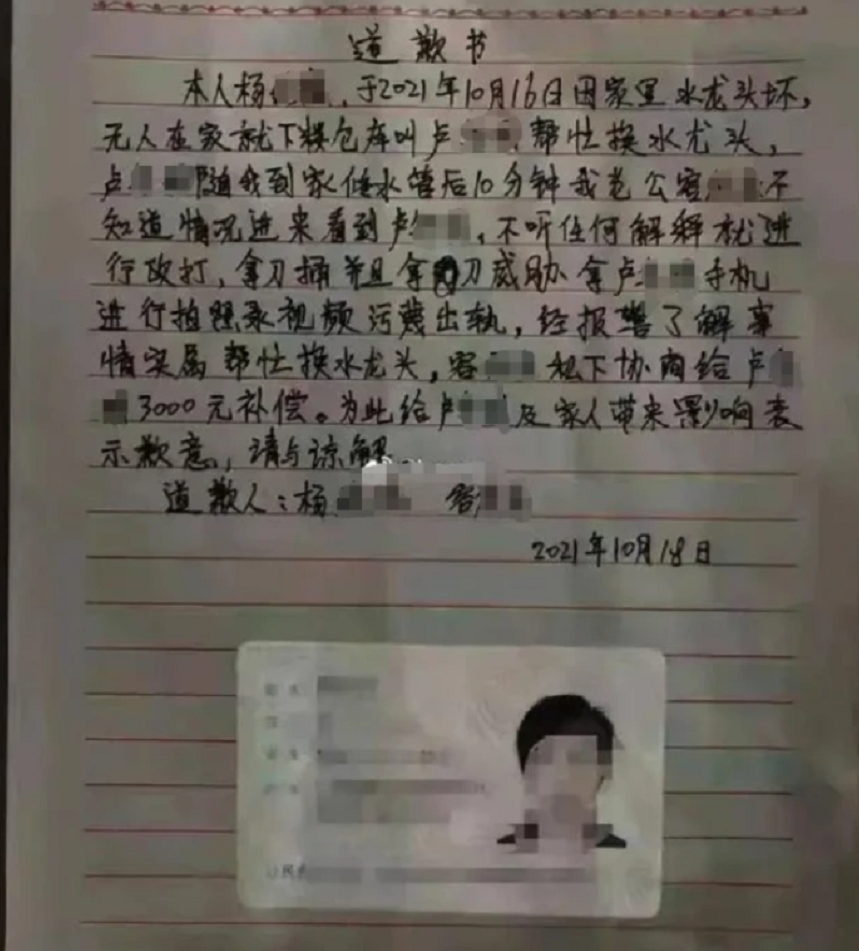 道歉书
本人杨 ，于2021年10月16日因家里水龙头坏，
无人在家就下楼仓库叫卢 帮忙换水龙头，
卢 随我到家修水管后10分钟我老公容 不
知道情况进来看到卢 ，不听任何解释就进
行攻打，拿刀捅并且拿 刀威胁拿卢 手机
进行拍照录视频污蔑出轨，经报警了解事
情实属帮忙换水龙头，容 私下协商给卢
3000元补偿。为此给卢 及家人带来影响表
示歉意，请与谅解
道歉人：杨 容
2021年10月18日